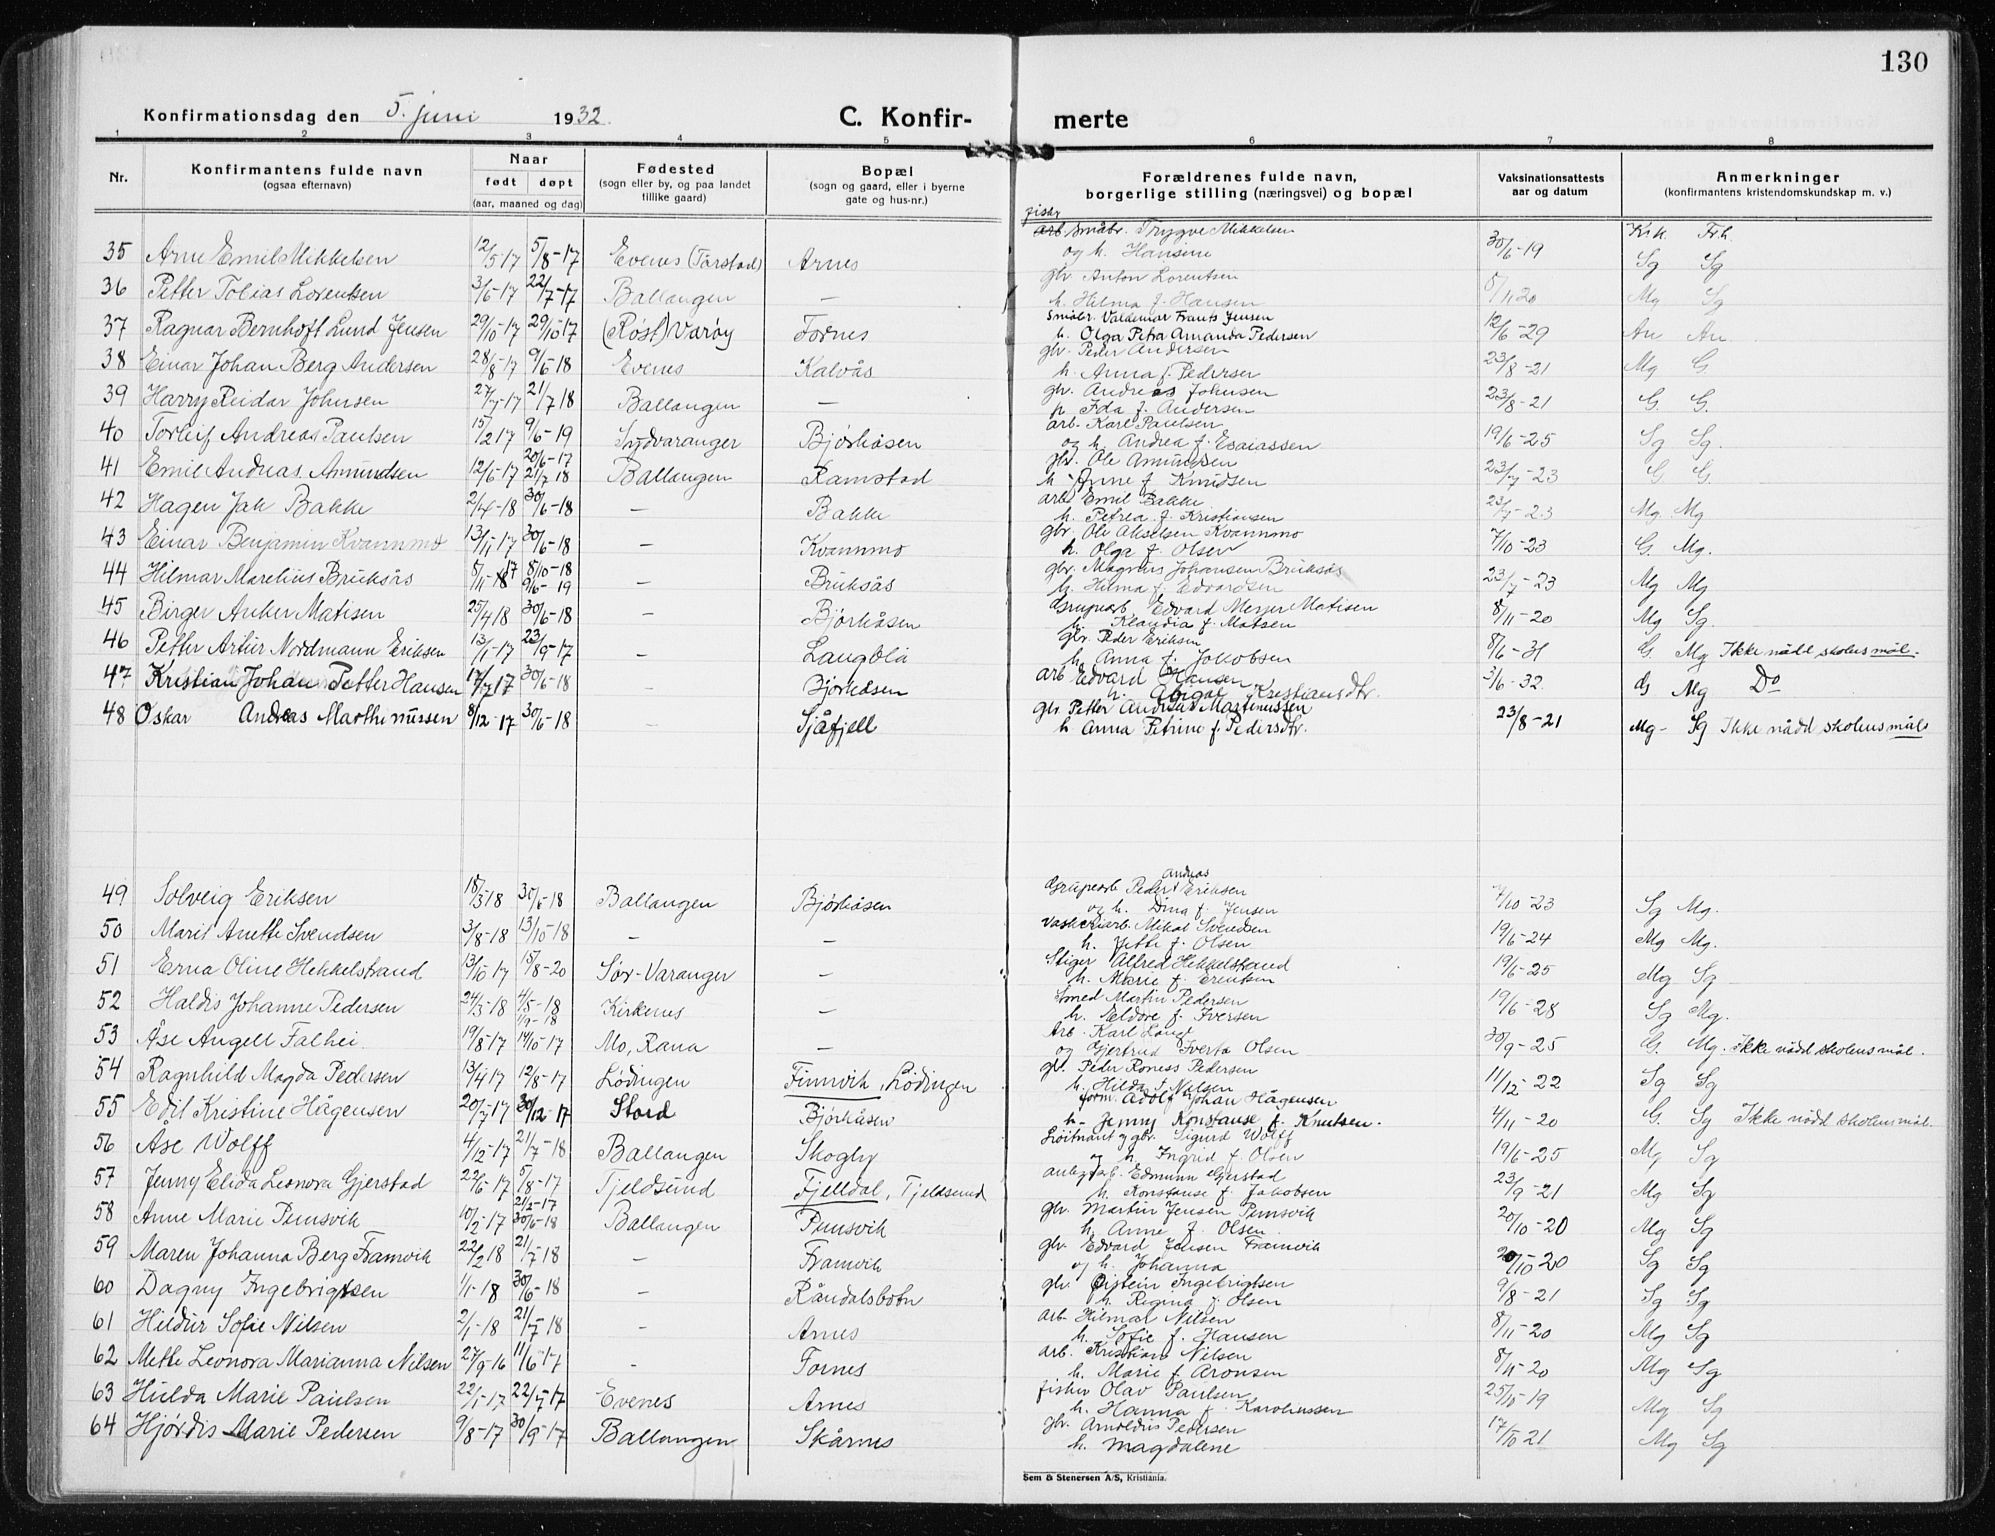 130
Konfirmationsdag den 5. juni 1932. C. Konfir- merte
1 2 3 4 5 6 7 8
Nr. Konfirmantens fulde navn (ogsaa efternavn) Naar født døpt (aar, maaned og dag) Fødested (sogn eller by, og paa landet tillike gaard) Bopæl (sogn og gaard, eller i byerne gate og hus-nr.) Forældrenes fulde navn, borgerlige stilling (næringsvei) og bopæl Vaksinationsattests aar og datum Anmerkninger (konfirmantens kristendomskundskap m. v.)
35 Arne Emil Mikkelsen 12/5-17 5/8-17 Evenes (Tårstad) Arnes fisker arb småbr. Trygve Mikkelsen og h. Hansine 30/6-19 Krk. Frh. Sg Sg
36 Petter Tobias Lorentsen 3/6-17 22/7-17 Ballangen — gbr Anton Lorentsen h. Hilma f. Hansen 8/11 20 Mg Sg
37 Ragnar Bernhoft Lund Jensen 29/10-17 29/10-17 (Røst) Værøy Fornes Småbr. Valdemar Frants Jensen h. Olga Petra Amanda Pedersen 12/6-29 An An
38 Einar Johan Berg Andersen 28/8-17 9/6-18 Evenes Kalvås gbr. Peder Andersen h. Anna f. Pedersen 23/8-21 Mg G.
39 Harry Reidar Johnsen 27/7-17 21/7 18 Ballangen — gbr. Andreas Johnsen h Ida f. Andersen 23/8-21 G. G.
40 Torleif Andreas Paulsen 15/2 17 9/6-19 Sydvaranger Bjørkåsen arb. Karl Paulsen og h. Andrea f. Esaiassen 19/6-25 Sg Sg.
41 Emil Andreas Amundsen 12/6-17 20/6-17 21/7 18 Ballangen Ramstad gbr. Ole Amundsen h - Anne f Knudsen 23/7-23 G G.
42 Hagen Jak Bakke 2/4-18 30/6-18 — Bakke arb Emil Bakke h. Petrea f. Kristiansen 23/7-23 Mg. Mg
43 Einar Benjamin Kvannmo 13/11-17 30/6-18 — Kvannmo gbr. Ole Akselsen Kvannmo h. Olga f. Olsen 7/10-23 G. Mg.
44 Hilmar Marelius Bruksås 5/11-18 17 8/10-18 9/6-19 — Bruksås gbr. Magnus Johansen Bruksås h. Hilma f. Edvardsen 23/7-23 Mg Mg
45 Birger Anker Matisen 25/4 18 30/6-18 — Bjørkåsen Grupearb. Edvard Meyer Matisen h. Klaudia f. Matsen 8/11-20 Mg Sg.
46 Petter Artur Nordmann Eriksen 13/1-17 23/9-17 — Langblå gbr. Peder Eriksen h. Anna f. Jakobsen 8/6-31 G. Mg Ikke nådd skolens mål.
47 Kristian Johan Petter Hansen 17/7 17 30/6-18 — Bjørkåsen arb Edvard Hansen h. Abigal Kristiansdtr. 3/6-32. G Mg Do
48 Oskar Andreas Marthinussen 8/12-17 30/6-18 — Sjåfjell gbr Petter Andreas Martinussen h Anna Petrine f. Pedersdtr. 23/8-21 Mg- Sg Ikke nådd skolens mål
49 Solveig Eriksen 18/3 18 30/6-18 Ballangen Bjørkåsen Grupearb Peder Andreas Eriksen og h. Dina f. Jensen 7/10-23 Sg Mg.
50 Marit Anette Svendsen 3/8-18 13/10-18 — — Vaskeriarb. Mikal Svendsen h. Jette f. Olsen 19/6-24 Mg Mg.
51 Erna Oline Hekkelstrand 13/10 17 15/8-20 Sør-Varanger — Stiger Alfred Hekkelstrand h. Marie f. Eriksen 19/6-25 Mg Sg
52 Haldis Johanne Pedersen 24/3-18 4/8-18 1/9-18 Kirkenes — Smed Martin Pedersen h. Eldore f. Iversen 19/6-28 Sg Mg.
53 Åse Angell Falhei. 19/8-17 14/10-17 Mo, Rana — Arb. Karl Lange og Gjertrud Iverta Olsen 30/9-25 G. Mg. Ikke nådd skolens mål.
54 Ragnhild Magda Pedersen 13/4 17 12/8-17 Lødingen Finnvik, Lødingen gbr. Peder Roness Pedersen h. Hilda f. Nilsen 11/12-22 Sg Sg
55 Edit Kristine Hågensen 20/7-17 30/12-17 Stord Bjørkåsen form. Adolf Johan Hågensen h- Jenny Konstanse f. Knutsen. 4/11-20 G. Sg Ikke nådd skolens mål.
56 Åse Wolff 4/12-17 21/7-18 Ballangen Skogly Løitnant og gbr. Sigurd Wolff og h. Ingrid f. Olsen 19/6-25 Mg Sg
57 Jenny Elida Leonora Gjerstad 22/6-17 5/8-17 Tjeldsund Fjelldal, Tjeldsund anlegsarb. Edmund Gjerstad h. Konstanse f. Jakobsen 23/9-21 Mg Sg
58 Anne Marie Pumsvik 10/2-17 21/2-17 30/6-18 Ballangen Pumsvik gbr. Martin Jensen Pumsvik h. Anne f. Olsen 20/10-20 Mg Sg
59 Maren Johanna Berg Framvik 22/2 18 21/7-18 — Framvik gbr. Edvard Jensen Framvik og h. Johanna 20/10-20 Sg Sg
60 Dagny Ingebrigtsen 1/1-18 30/6-18 — Råndalsbotn gbr. Øistein Ingebrigtsen h. Regina f. Olsen 9/8-21 Sg Sg
61 Hildur Sofie Nilsen 2/1-18 21/7-18 — Arnes arb. Hilmar Nilsen h. Sofie f. Hansen 8/11-20 Mg Sg
62 Mette Leonora Marianna Nilsen 27/9-16 11/6-17 - Fornes arb. Kristian Nilsen h. Marie f Aronsen 8/11-20 Mg Sg
63 Hulda Marie Paulsen 22/1-17 22/7-17 Evenes Arnes fisker Olav Paulsen h. Hanna f. Karoliussen 25/10-19 Mg Sg
64 Hjørdis Marie Pedersen 9/8-17 30/9-17 Ballangen Skårnes gbr. Arnoldus Pedersen h. Magdalene 17/10 21 Mg Sg
Sem & Stenersen A/S, Kristiania.